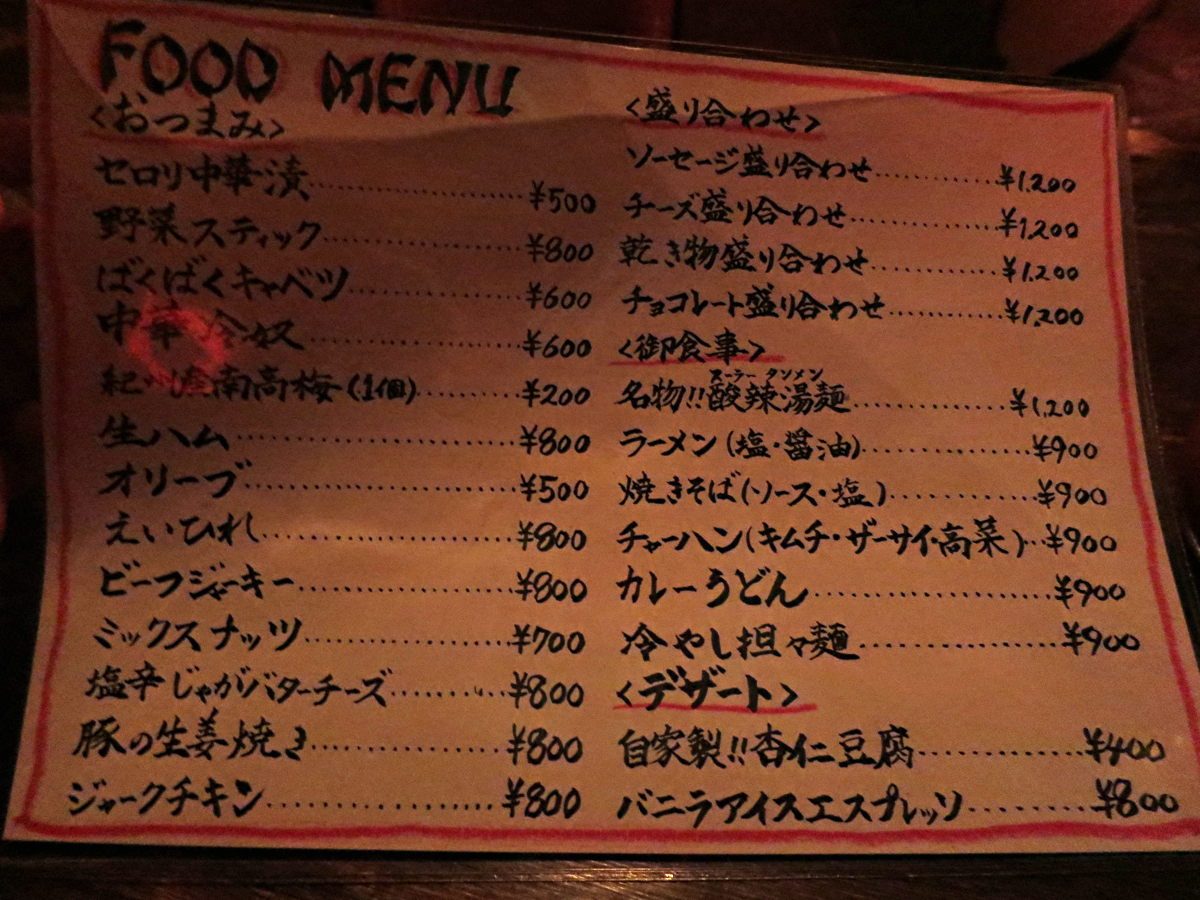 FOOD MENU
<おつまみ>
セロリ中華漬……¥500
野菜スティック……¥800
ばくばくキャベツ……¥600
中華冷奴……¥600
紀州 南高梅(1個)……¥200
生ハム……¥800
オリーブ……¥500
えいひれ……¥800
ビーフジャーキー……¥800
ミックスナッツ……¥700
塩辛じゃがバターチーズ……¥800
豚の生姜焼き……¥800
ジャークチキン……¥800
<盛り合わせ>
ソーセージ盛り合わせ……¥1,200
チーズ盛り合わせ……¥1,200
乾き物盛り合わせ……¥1,200
チョコレート盛り合わせ……¥1,200
<御食事>
スーラー タンメン
名物!!酸辣湯麺……¥1,200
ラーメン(塩・醤油)……¥900
焼きそば(ソース・塩)……¥900
チャーハン(キムチ・ザーサイ・高菜)…¥900
カレーうどん……¥900
冷やし担々麺……¥900
<デザート>
自家製!!杏仁豆腐……¥400
バニラアイスエスプレッソ……¥800